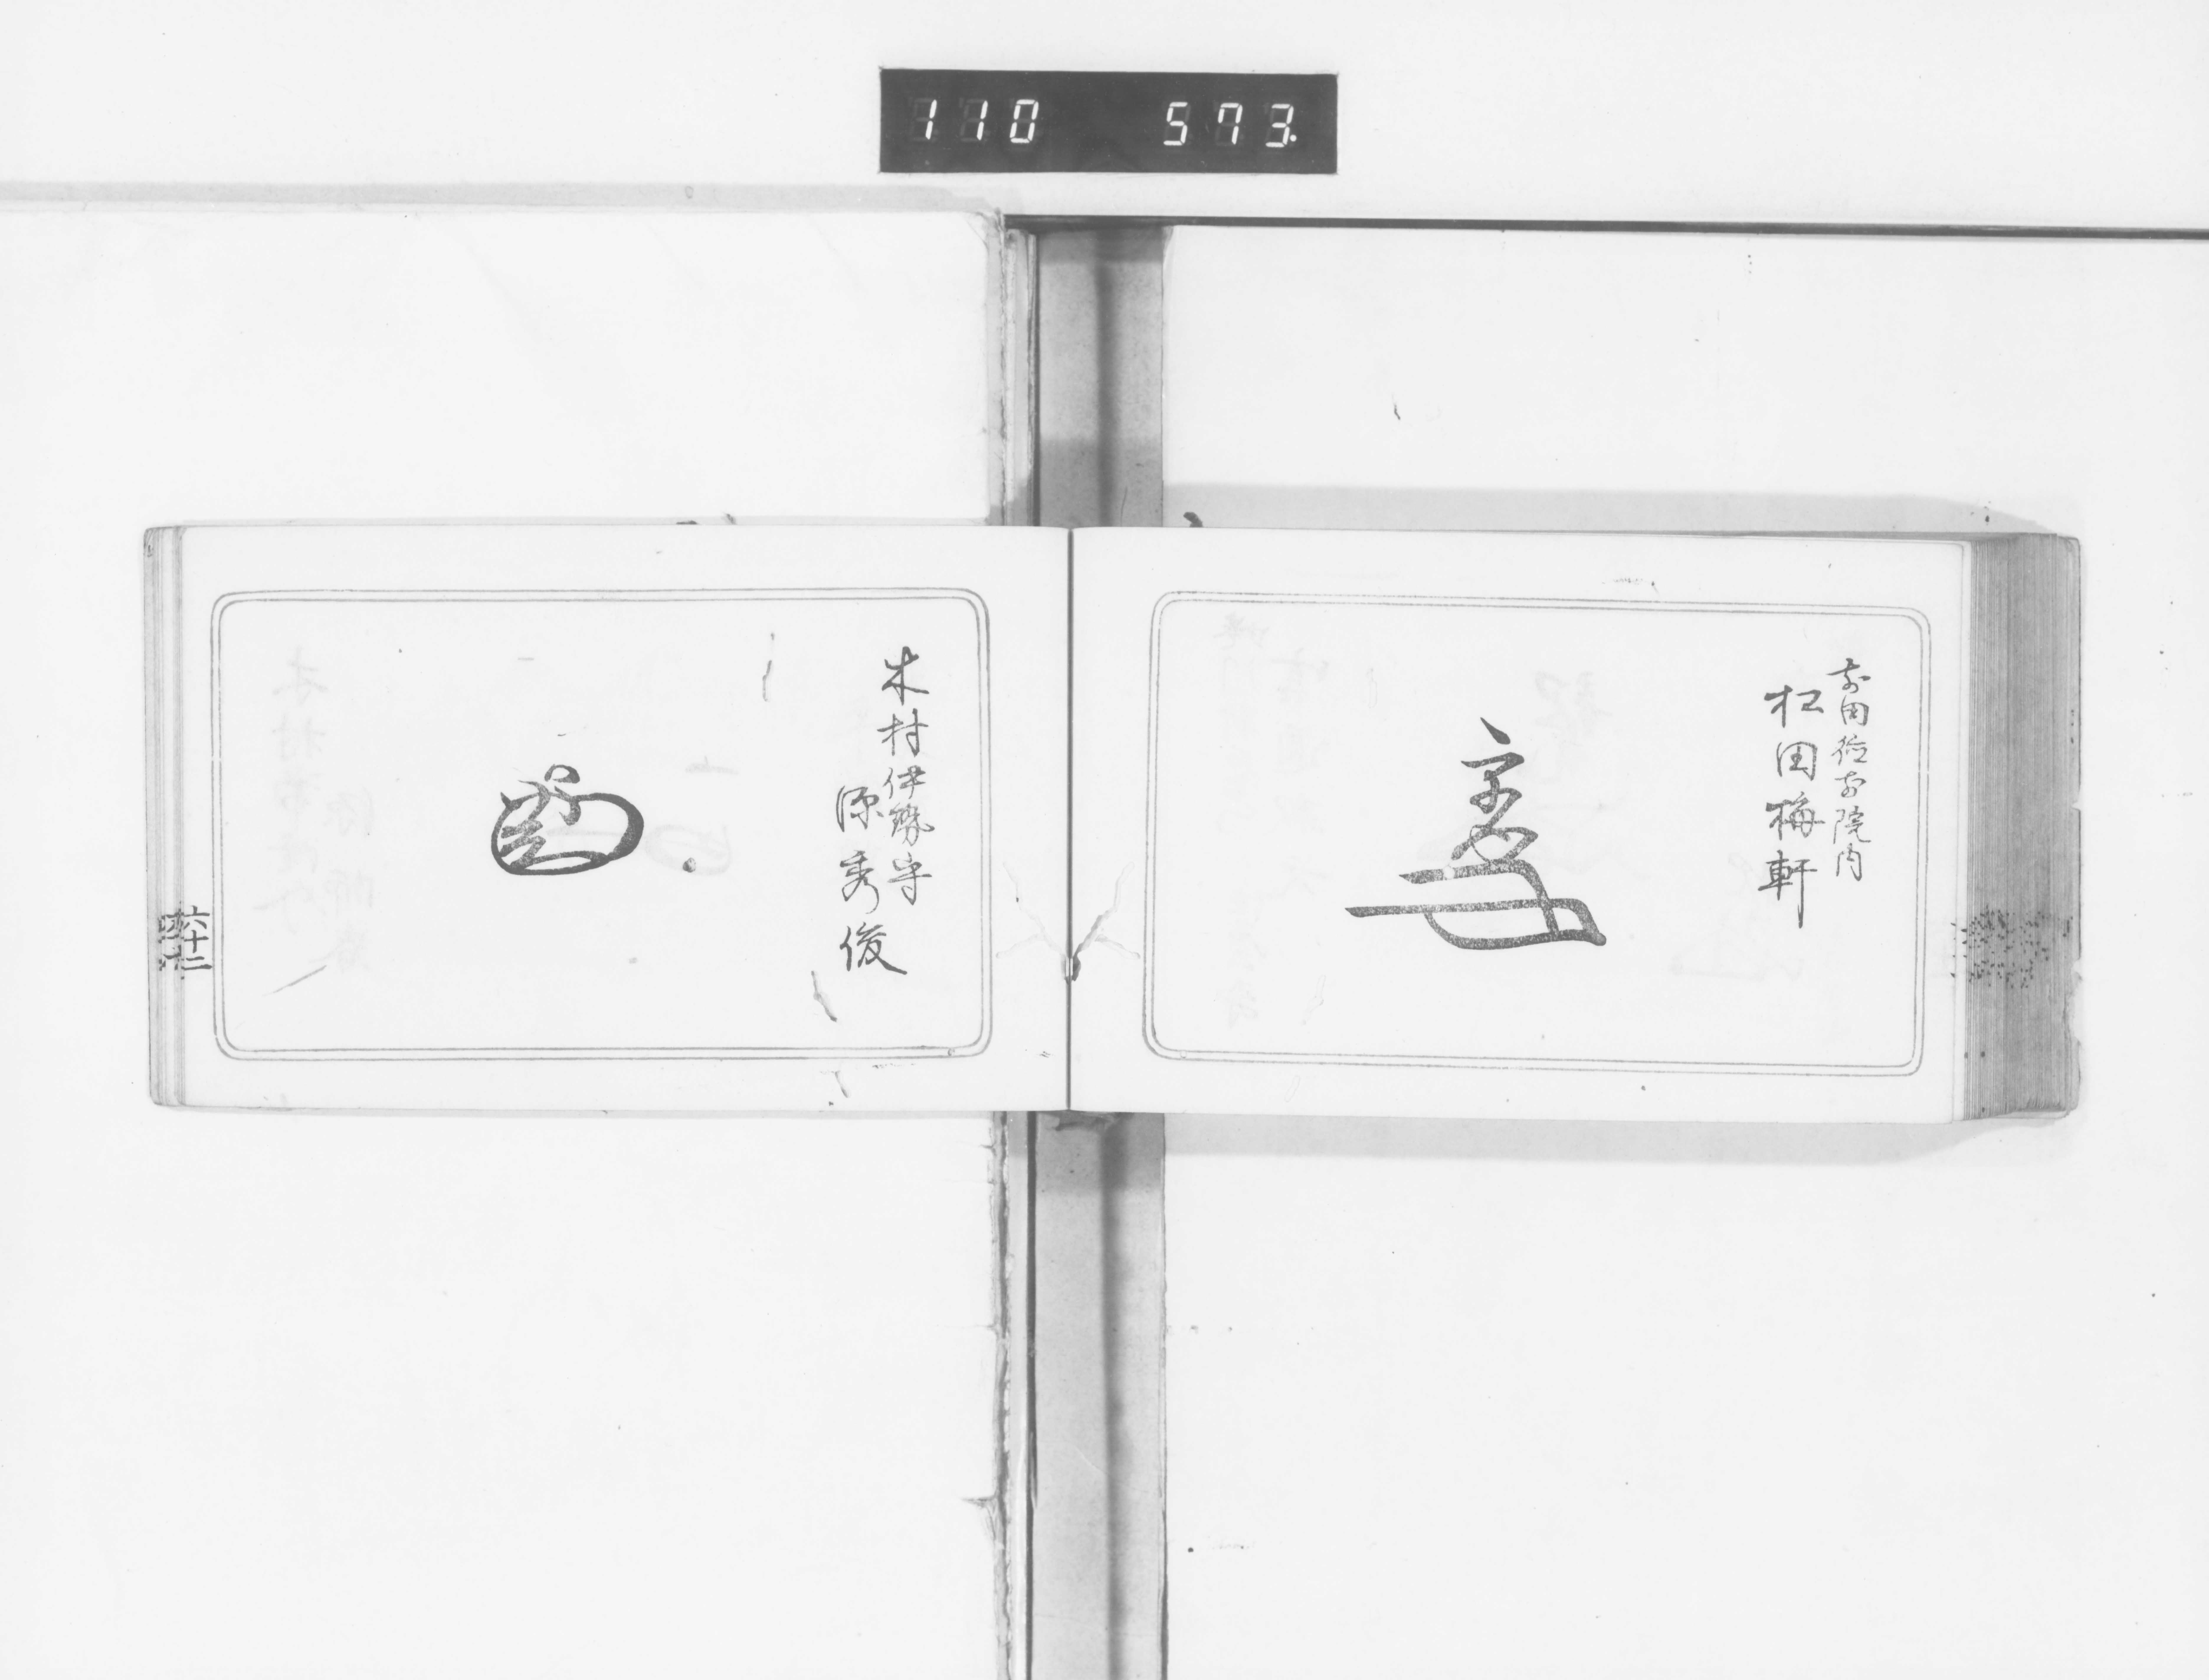 110 573.
前田従前院内
松田梅軒
木村伊勢守
源秀俊
六十二